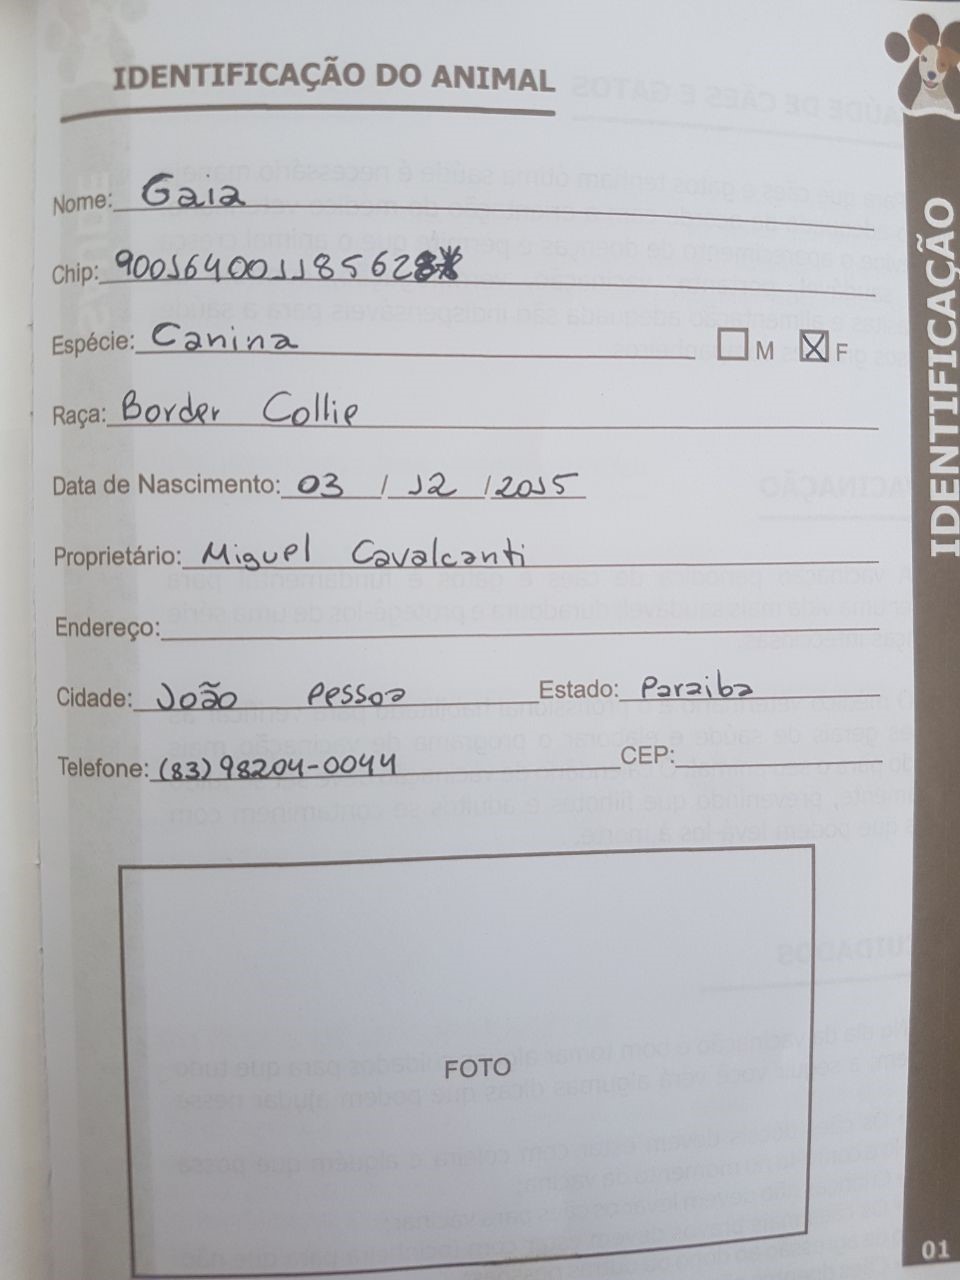 IDENTIFICAÇÃO DO ANIMAL
Nome: Gaia
Chip: 90016400118562
Espécie: Canina M F
Raça: Border Collie
Data de Nascimento: 03 / 12 / 2015
Proprietário: Miguel Cavalcanti
Endereço:
Cidade: João Pessoa Estado: Paraiba
Telefone: (83) 98204-0044 CEP:
FOTO
IDENTIFICAÇÃO
01